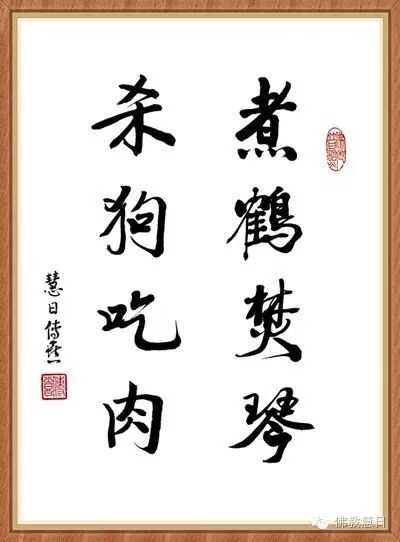 煮鶴焚琴
杀狗吃肉
慧日傳喜
佛教慧日